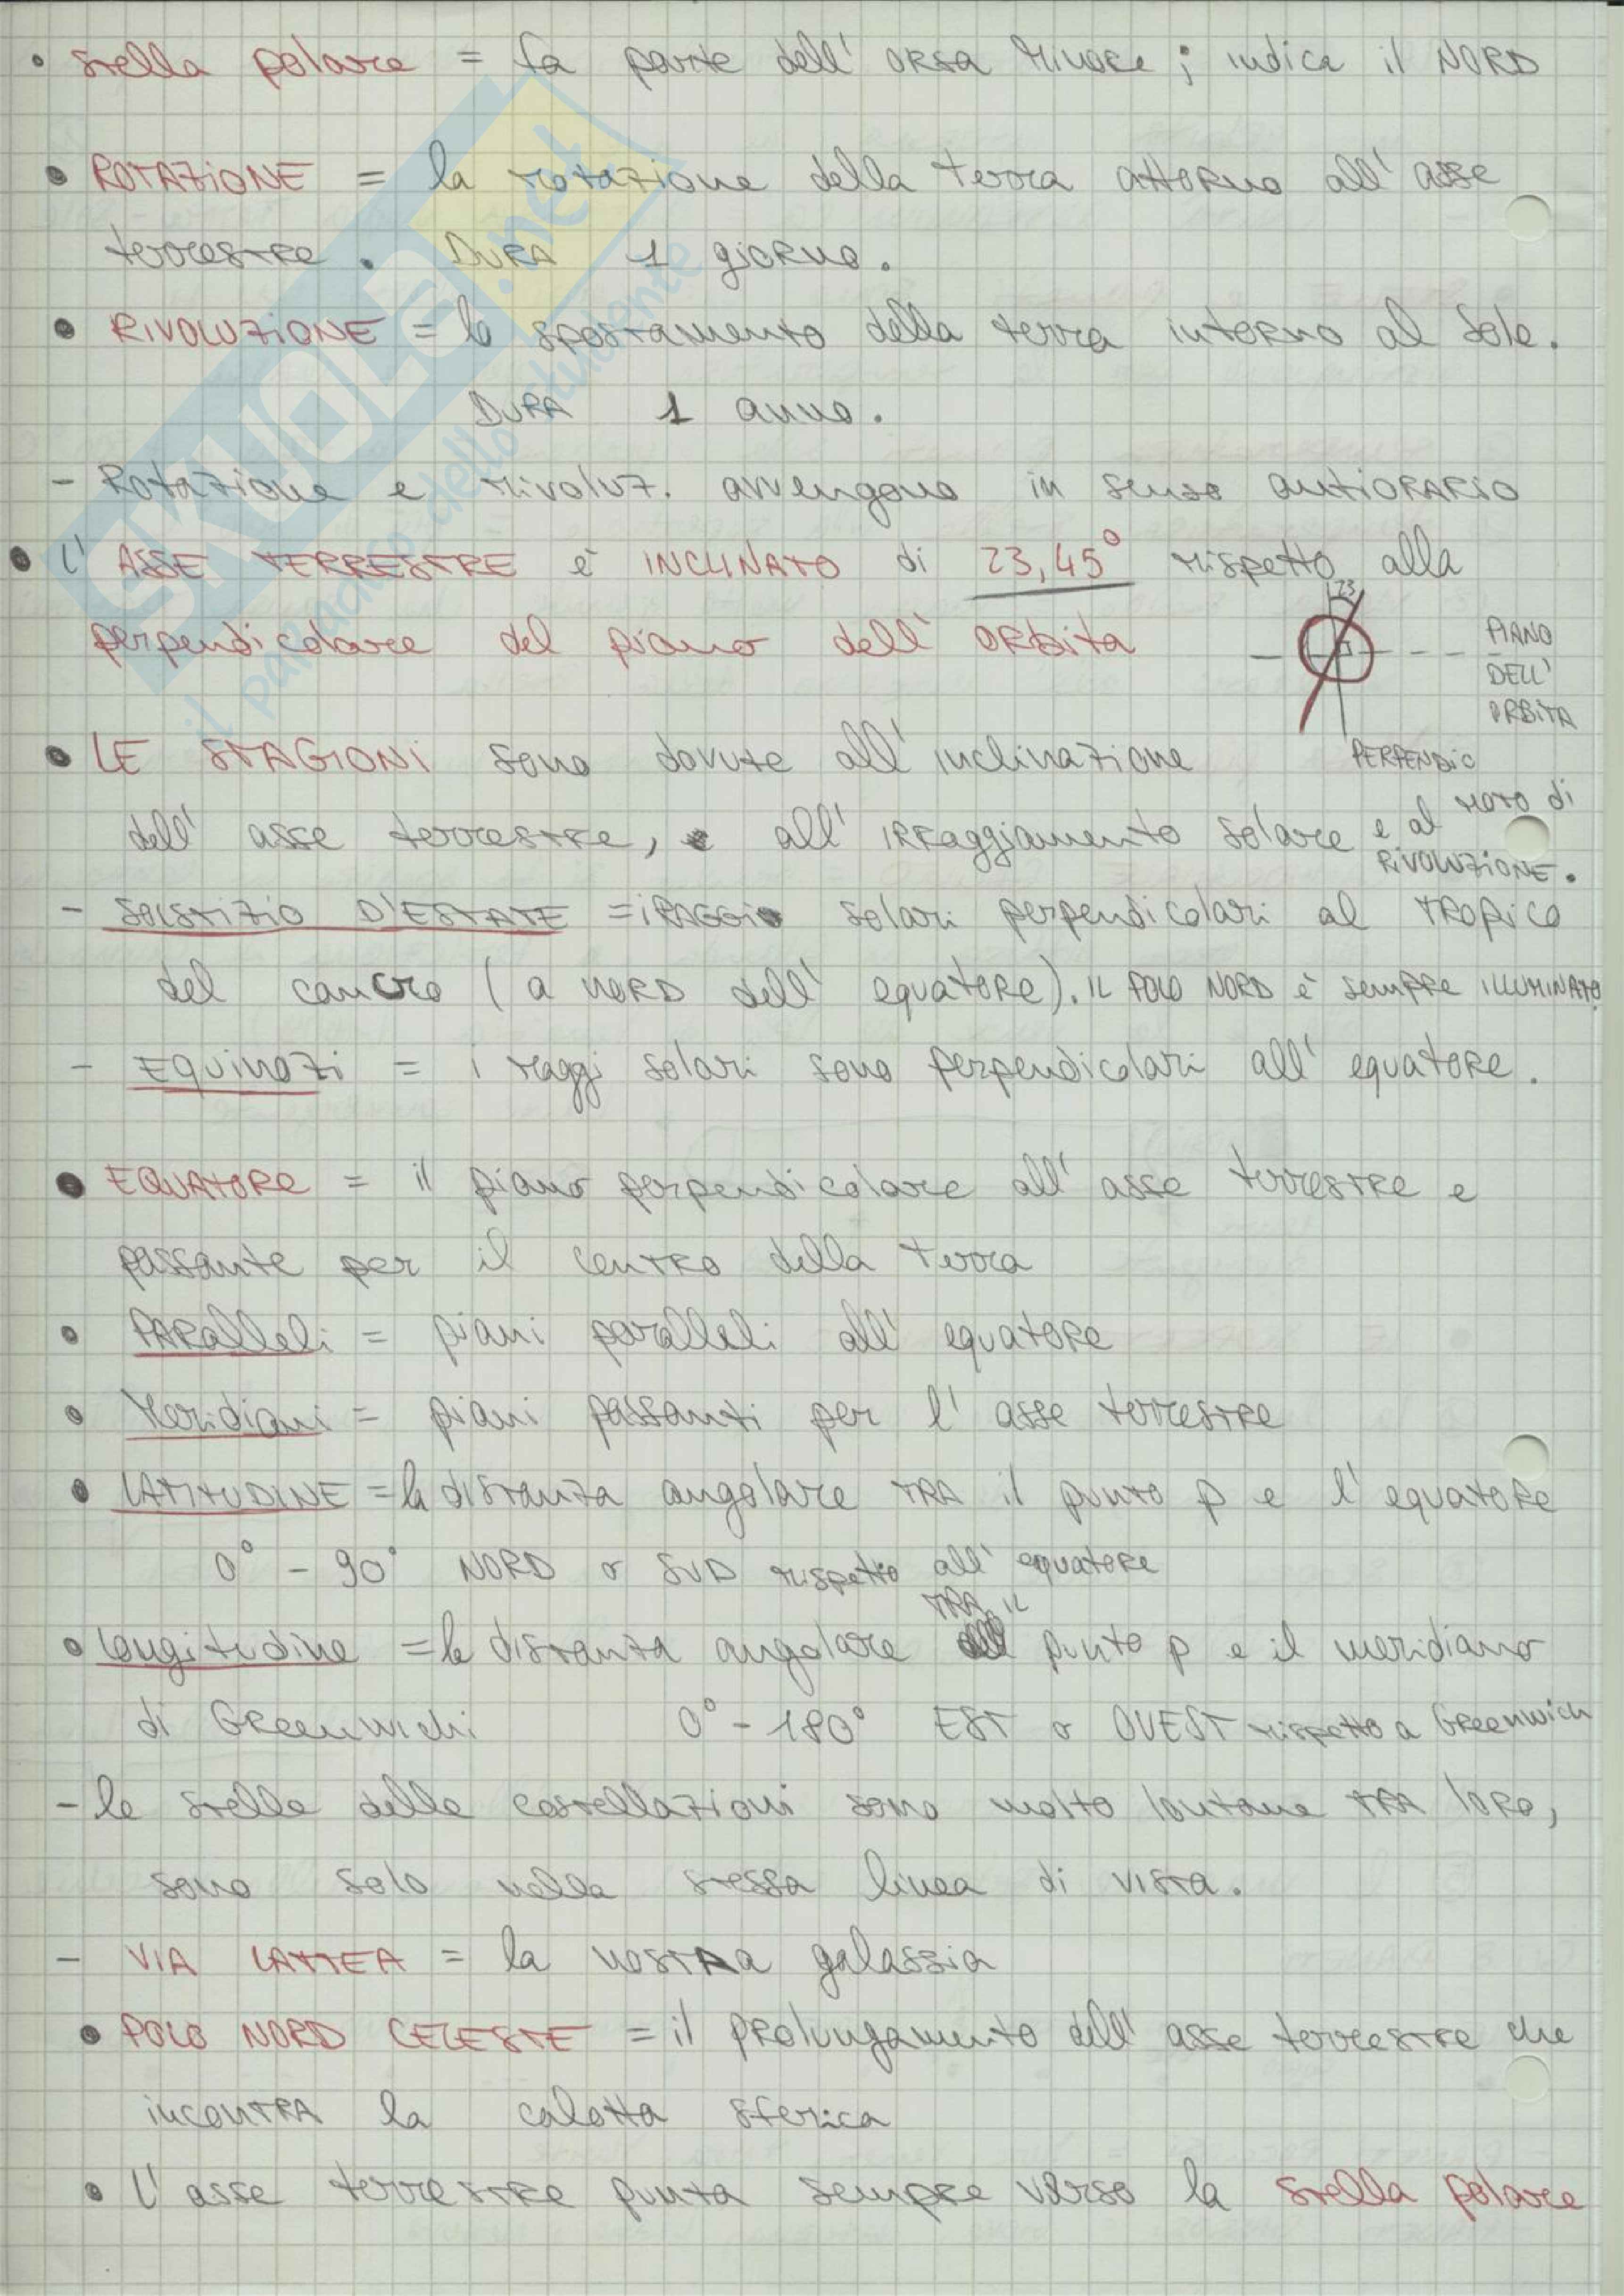 • stella polare = fa parte dell' ORSA Minore; indica il NORD
• ROTAZIONE = la rotazione della terra attorno all' asse
terrestre. DURA 1 giorno.
• RIVOLUZIONE = lo spostamento della terra intorno al Sole.
DURA 1 anno.
- Rotazione e rivoluz. avvengono in senso antiorario
• L' ASSE TERRESTRE è INCLINATO di 23,45° rispetto alla
perpendicolare del piano dell' orbita
23
PIANO
DELL'
ORBITA
PERPENDIC
• LE STAGIONI sono dovute all' inclinazione
dell' asse terrestre, e all' irraggiamento solare e al moto di
RIVOLUZIONE.
- SOLSTIZIO D'ESTATE = i RAGGI solari perpendicolari al tropico
del cancro (a NORD dell' equatore). IL POLO NORD è sempre ILLUMINATO
- EQUINOZI = i raggi solari sono perpendicolari all' equatore.
• EQUATORE = il piano perpendicolare all' asse terrestre e
passante per il centro della terra
• PARalleli = piani paralleli all' equatore
• Meridiani = piani passanti per l' asse terrestre
• LATITUDINE = la distanza angolare TRA il punto p e l' equatore
0° - 90° NORD o SUD rispetto all' equatore
• Longitudine = la distanza angolare TRA IL punto p e il meridiano
di Greenwich 0° - 180° EST o OVEST rispetto a Greenwich
- le stelle delle costellazioni sono molto lontane TRA loro,
sono solo nella stessa linea di vista.
- VIA LATTEA = la nostra galassia
• POLO NORD CELESTE = il prolungamento dell' asse terrestre che
incontra la calotta sferica
• L' asse terrestre punta sempre verso la stella polare
SKUOLA.net
il paradiso dello studente